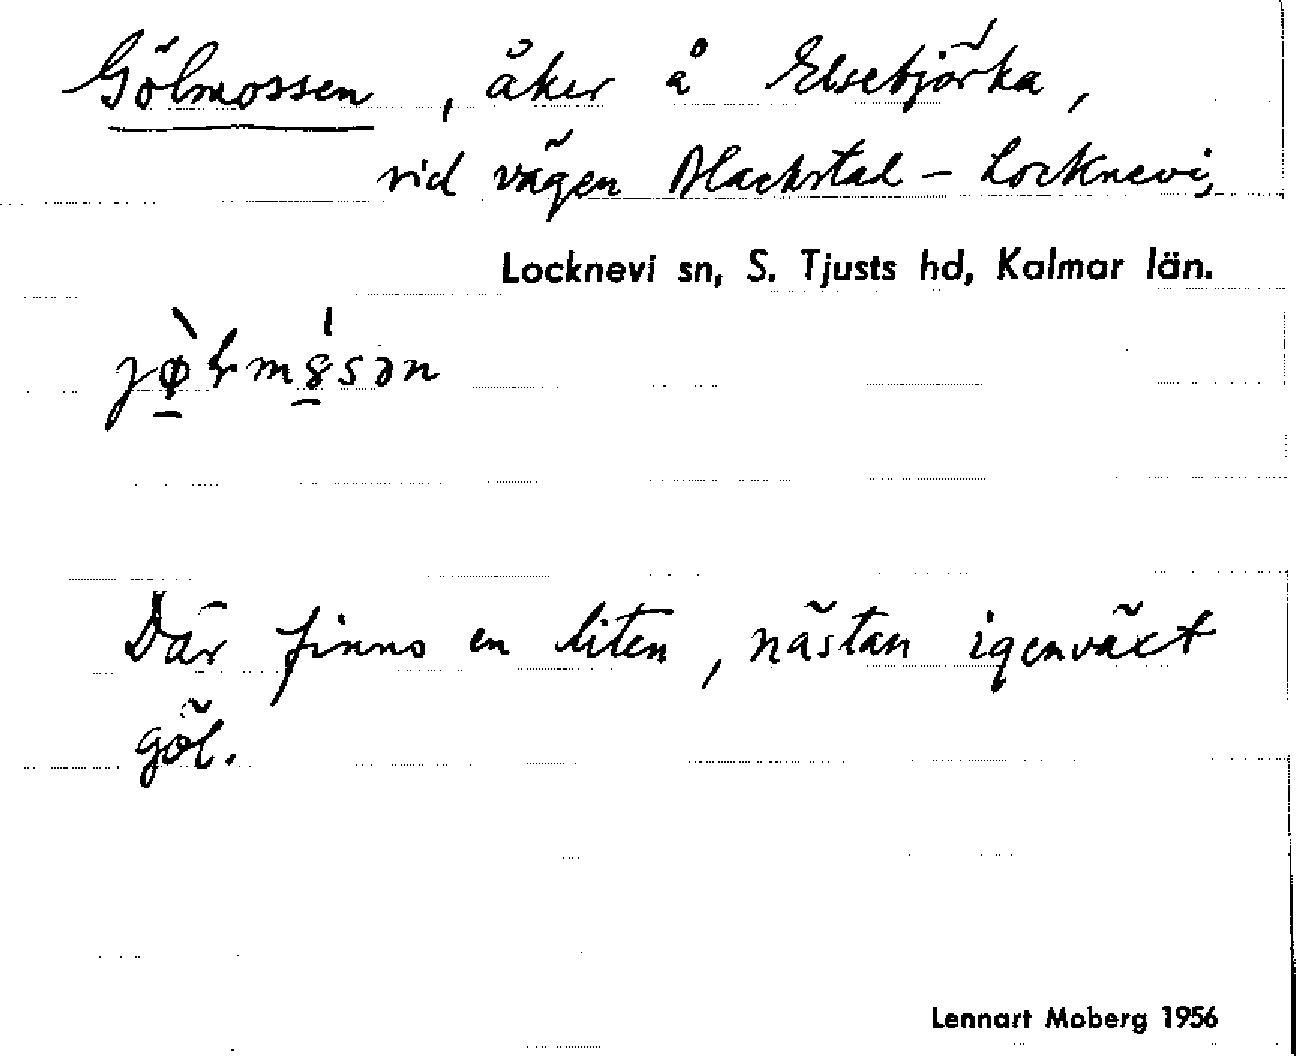 Gölmossen, åker å Elsebjörka,
vid vägen Blackstad – Locknevi,
Locknevi sn, S. Tjusts hd, Kalmar län.
Där finns en liten, nästan igenväxt
göl.
Lennart Moberg 1956